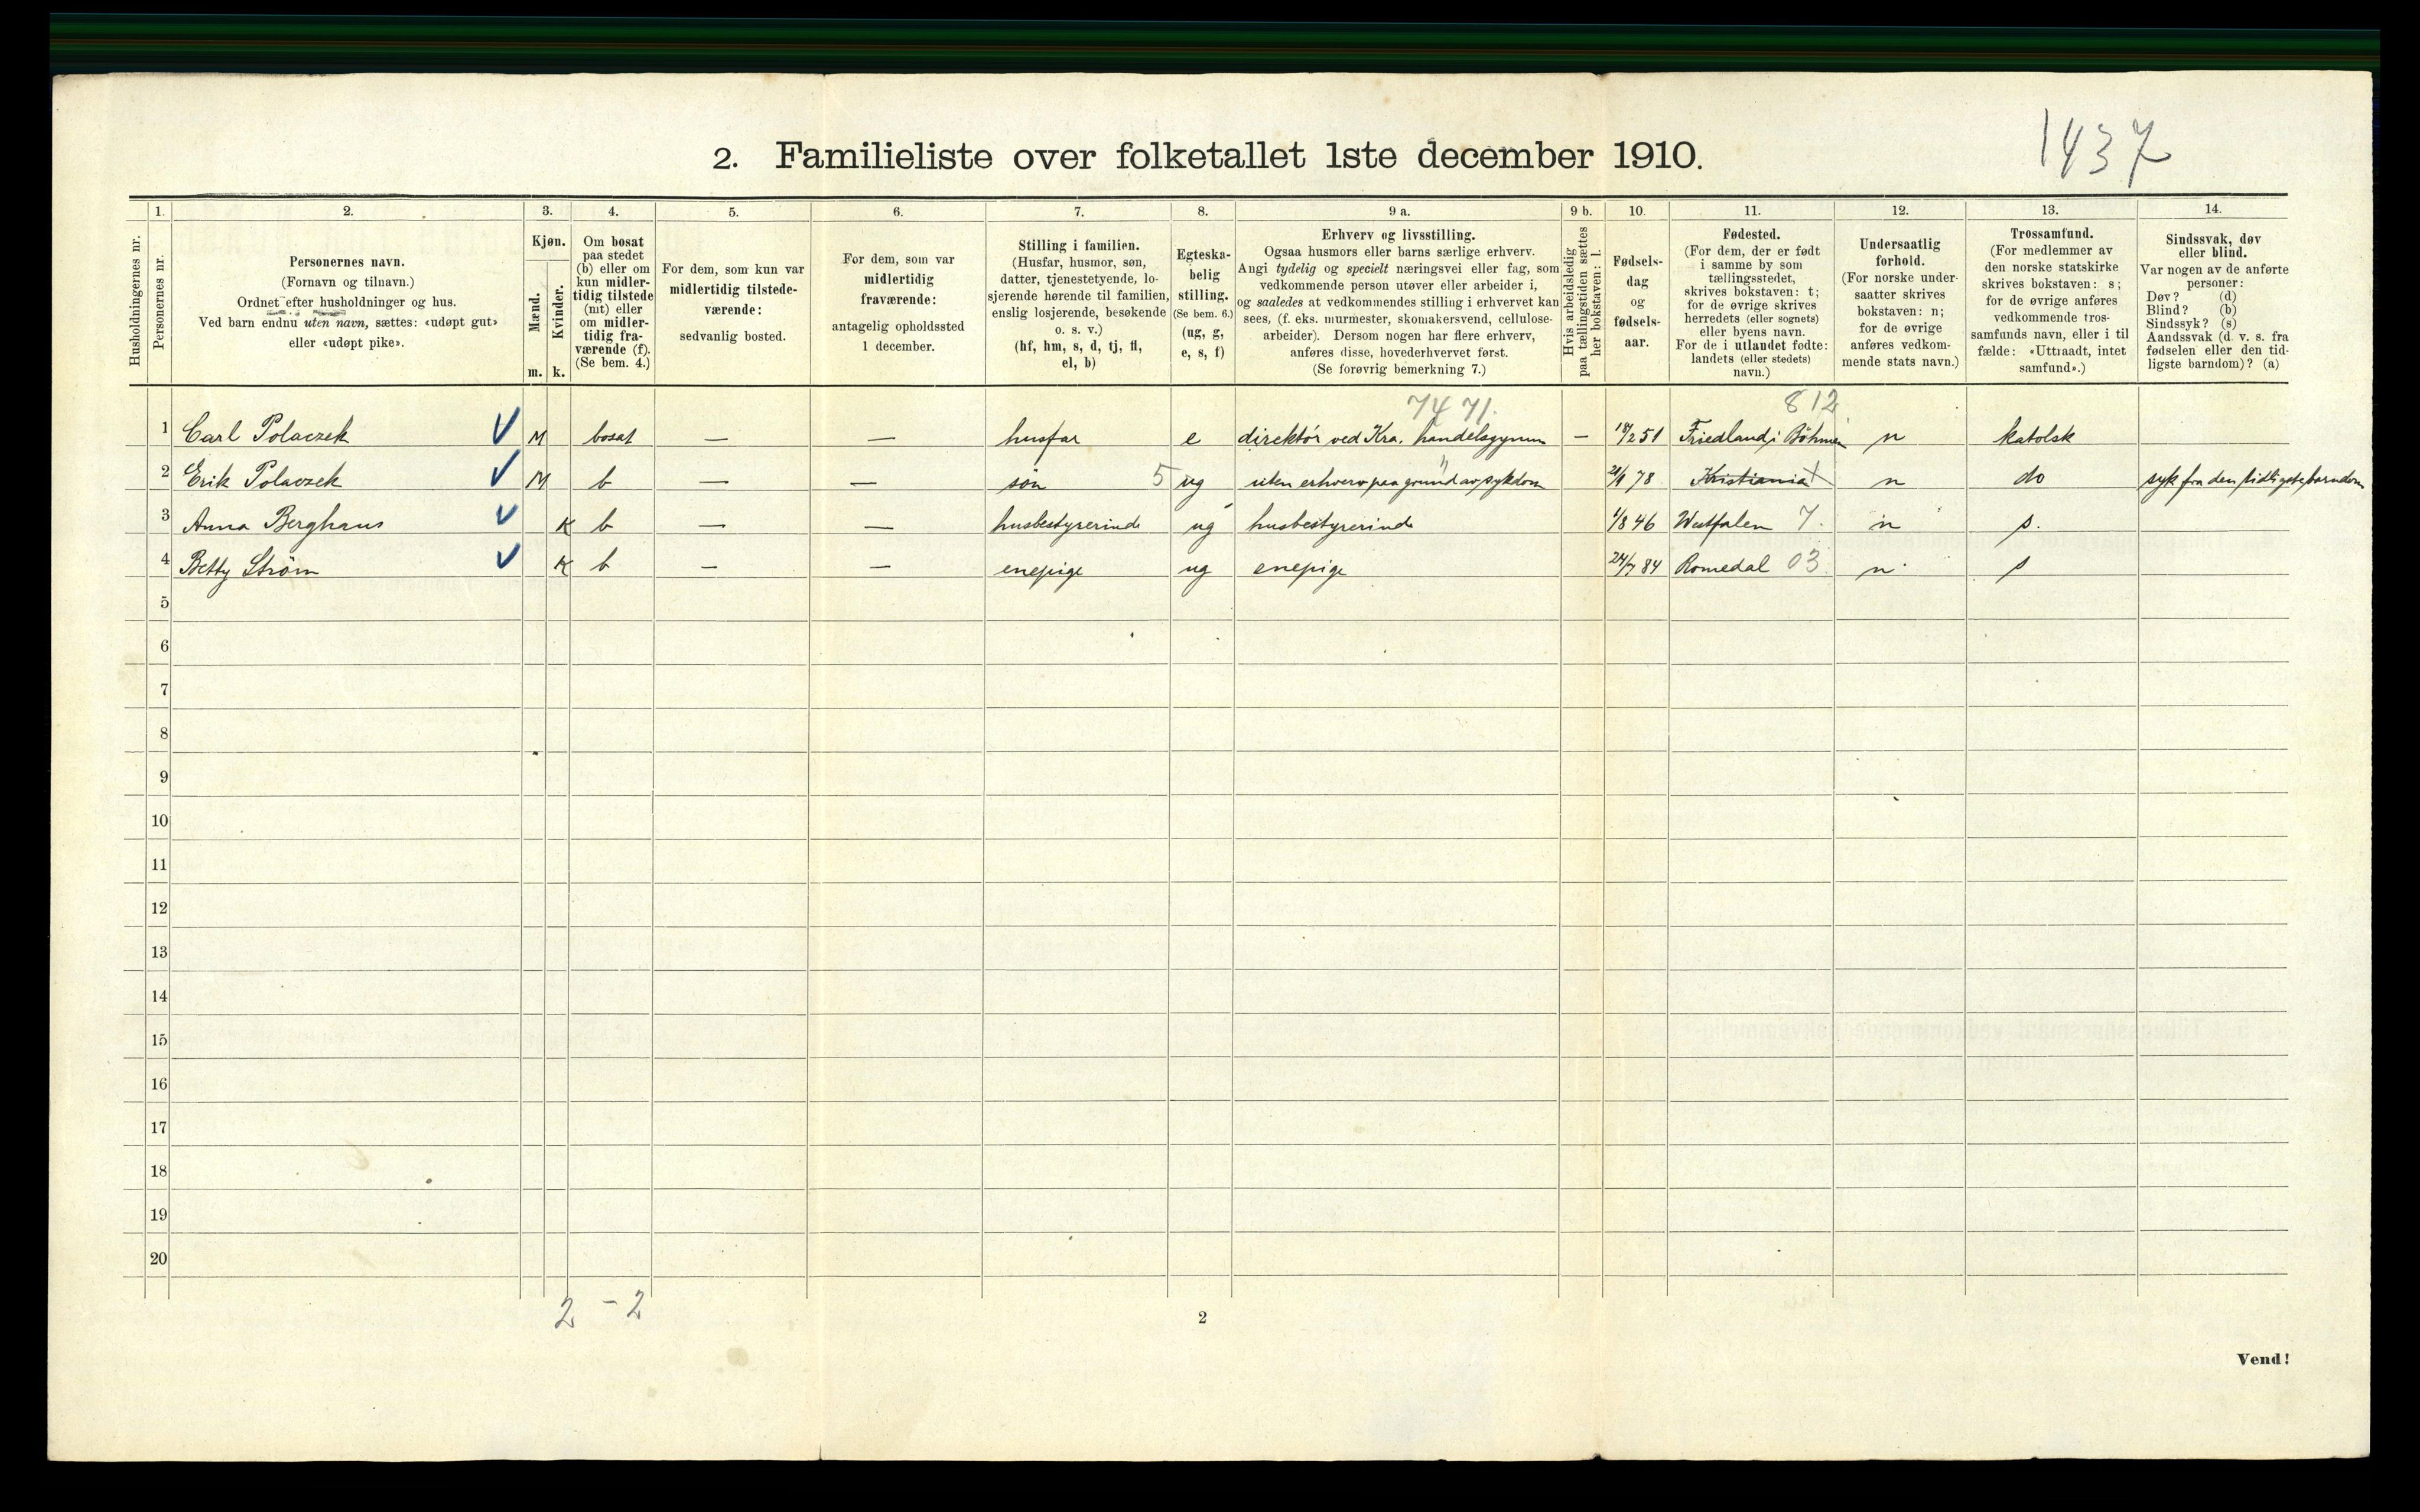 1437
2. Familieliste over folketallet 1ste december 1910.
1. 2. 3. 4. 5. 6. 7. 8. 9 a. 9 b. 10. 11. 12. 13. 14.
Husholdningernes nr.
Personernes nr.
Personernes navn.
(Fornavn og tilnavn.)
Ordnet efter husholdninger og hus.
Ved barn endnu uten navn, sættes: «udøpt gut»
eller «udøpt pike».
Kjøn.
Mænd.
Kvinder.
m. k.
Om bosat
paa stedet
(b) eller om
kun midler-
tidig tilstede
(mt) eller
om midler-
tidig fra-
værende (f).
(Se bem. 4.)
For dem, som kun var
midlertidig tilstede-
værende:
sedvanlig bosted.
For dem, som var
midlertidig
fraværende:
antagelig opholdssted
1 december.
Stilling i familien.
(Husfar, husmor, søn,
datter, tjenestetyende, lo-
sjerende hørende til familien,
enslig losjerende, besøkende
o. s. v.)
(hf, hm, s, d, tj, fl,
el, b)
Egteska-
belig
stilling.
(Se bem. 6.)
(ug, g,
e, s, f)
Erhverv og livsstilling.
Ogsaa husmors eller barns særlige erhverv.
Angi tydelig og specielt næringsvei eller fag, som
vedkommende person utøver eller arbeider i,
og saaledes at vedkommendes stilling i erhvervet kan
sees, (f. eks. murmester, skomakersvend, cellulose-
arbeider). Dersom nogen har flere erhverv,
anføres disse, hovederhvervet først.
(Se forøvrig bemerkning 7.)
Hvis arbeidsledig
paa tællingstiden sættes
her bokstaven: l.
Fødsels-
dag
og
fødsels-
aar.
Fødested.
(For dem, der er født
i samme by som
tællingsstedet,
skrives bokstaven: t;
for de øvrige skrives
herredets (eller sognets)
eller byens navn.
For de i utlandet fødte:
landets (eller stedets)
navn.)
Undersaatlig
forhold.
(For norske under-
saatter skrives
bokstaven: n;
for de øvrige
anføres vedkom-
mende stats navn.)
Trossamfund.
(For medlemmer av
den norske statskirke
skrives bokstaven: s;
for de øvrige anføres
vedkommende tros-
samfunds navn, eller i til
fælde: «Uttraadt, intet
samfund».)
Sindssvak, døv
eller blind.
Var nogen av de anførte
personer:
Døv? (d)
Blind? (b)
Sindssyk? (s)
Aandssvak (d. v. s. fra
fødselen eller den tid-
ligste barndom)? (a)
7471. 812
1 Carl Polaczek V M bosat — — husfar e direktör ved Kra. handelsgymn — 18/2 51 Friedland i Böhmen n katolsk
2 Erik Polaczek V M b — — sön 5 ug uten erhverv paa grund av sykdom 21/1 78 Kristiania n do syk fra den tidligste barndom
3 Anna Berghaus V K b — — husbestyrerinde ug husbestyrerinde 1/8 46 Westfalen 7. n s.
4 Betty Ström V K b — — enepige ug enepige 24/7 84 Romedal 03 n s
5
6
7
8
9
10
11
12
13
14
15
16
17
18
19
20
2 – 2
2
Vend!